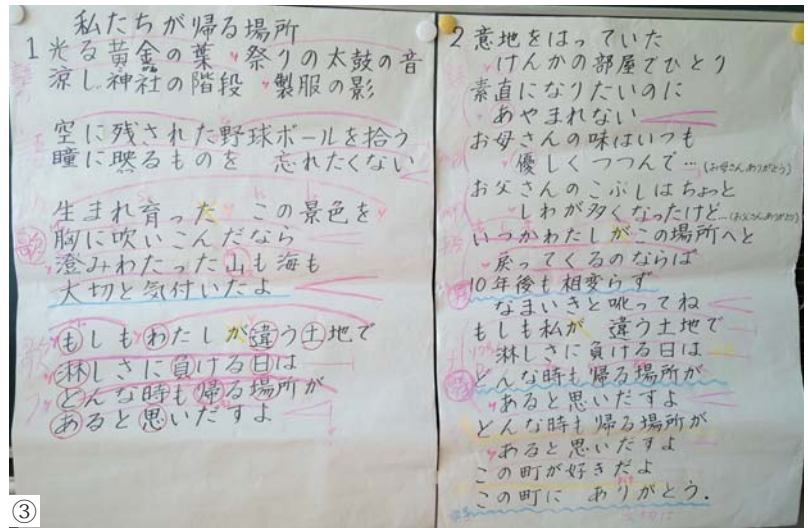 私たちが帰る場所
1 光る黄金の葉 祭りの太鼓の音
涼し神社の階段 製服の影
空に残された野球ボールを拾う
瞳に映るものを 忘れたくない
生まれ育った この景色を
胸に吹いこんだなら
澄みわたった山も海も
大切と気付いたよ
もしもわたしが違う土地で
淋しさに負ける日は
どんな時も帰る場所が
あると思いだすよ
2 意地をはっていた
けんかの部屋でひとり
素直になりたいのに
あやまれない
お母さんの味はいつも
優しくつつんで…(お母さんありがとう)
お父さんのこぶしはちょっと
しわが多くなったけど…(お父さんありがとう)
いつかわたしがこの場所へと
戻ってくるのならば
10年後も相変らず
なまいきと叱ってね
もしも私が 違う土地で
淋しさに負ける日は
どんな時も帰る場所が
あると思いだすよ
どんな時も帰る場所が
あると思いだすよ
この町が好きだよ
この町に ありがとう.
③